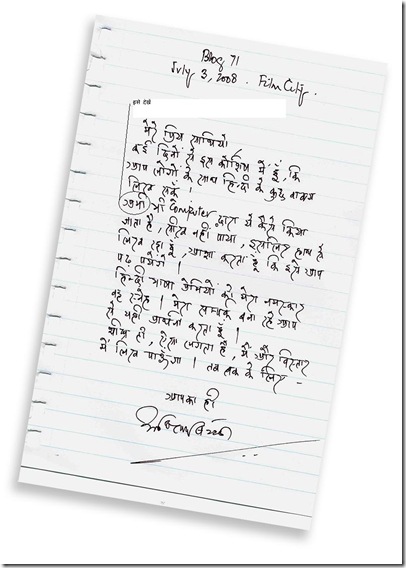 Blog 71
July 3, 2008. Film City.
इसे देखें
मेरे प्रिय साथियो
कई दिनों से इस कोशिश में हूँ, कि
आप लोगों के साथ हिन्दी के कुछ वाक्य
लिख सकूँ ।
अभी भी Computer द्वारा ये कैसे किया
जाता है, सीख नहीं पाया, इसलिए हाथ से
लिख रहा हूँ, आशा करता हूँ कि इसे आप
पढ़ पायेंगे ।
हिन्दी भाषा प्रेमियों को मेरा नमस्कार
एवं स्नेह । मेरा सम्पर्क बना रहे आप
से यही प्रार्थना करता हूँ ।
शीघ्र ही, ऐसा लगता है, मैं और विस्तार
में लिख पाऊँगा । तब तक के लिए -
आपका ही